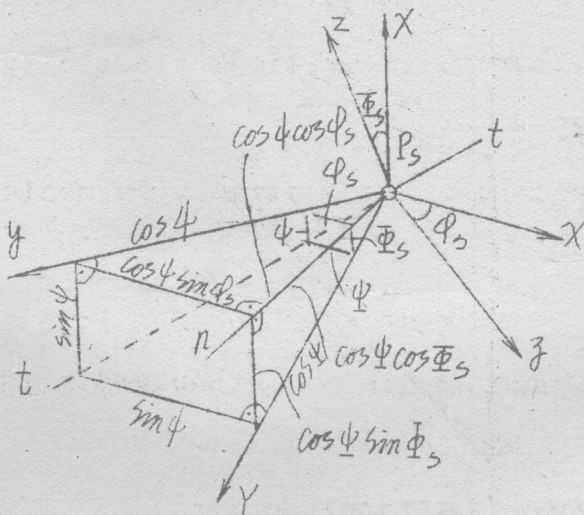 z X
Φₛ
Pₛ
t
cosψcosφₛ
φₛ
φₛ
cosψ
ψ
Φₛ
X
y
Ψ
cosψsinφₛ
sinψ
n
cosΨ
cosΨcosΦₛ
z
t
sinψ
cosΨsinΦₛ
Y